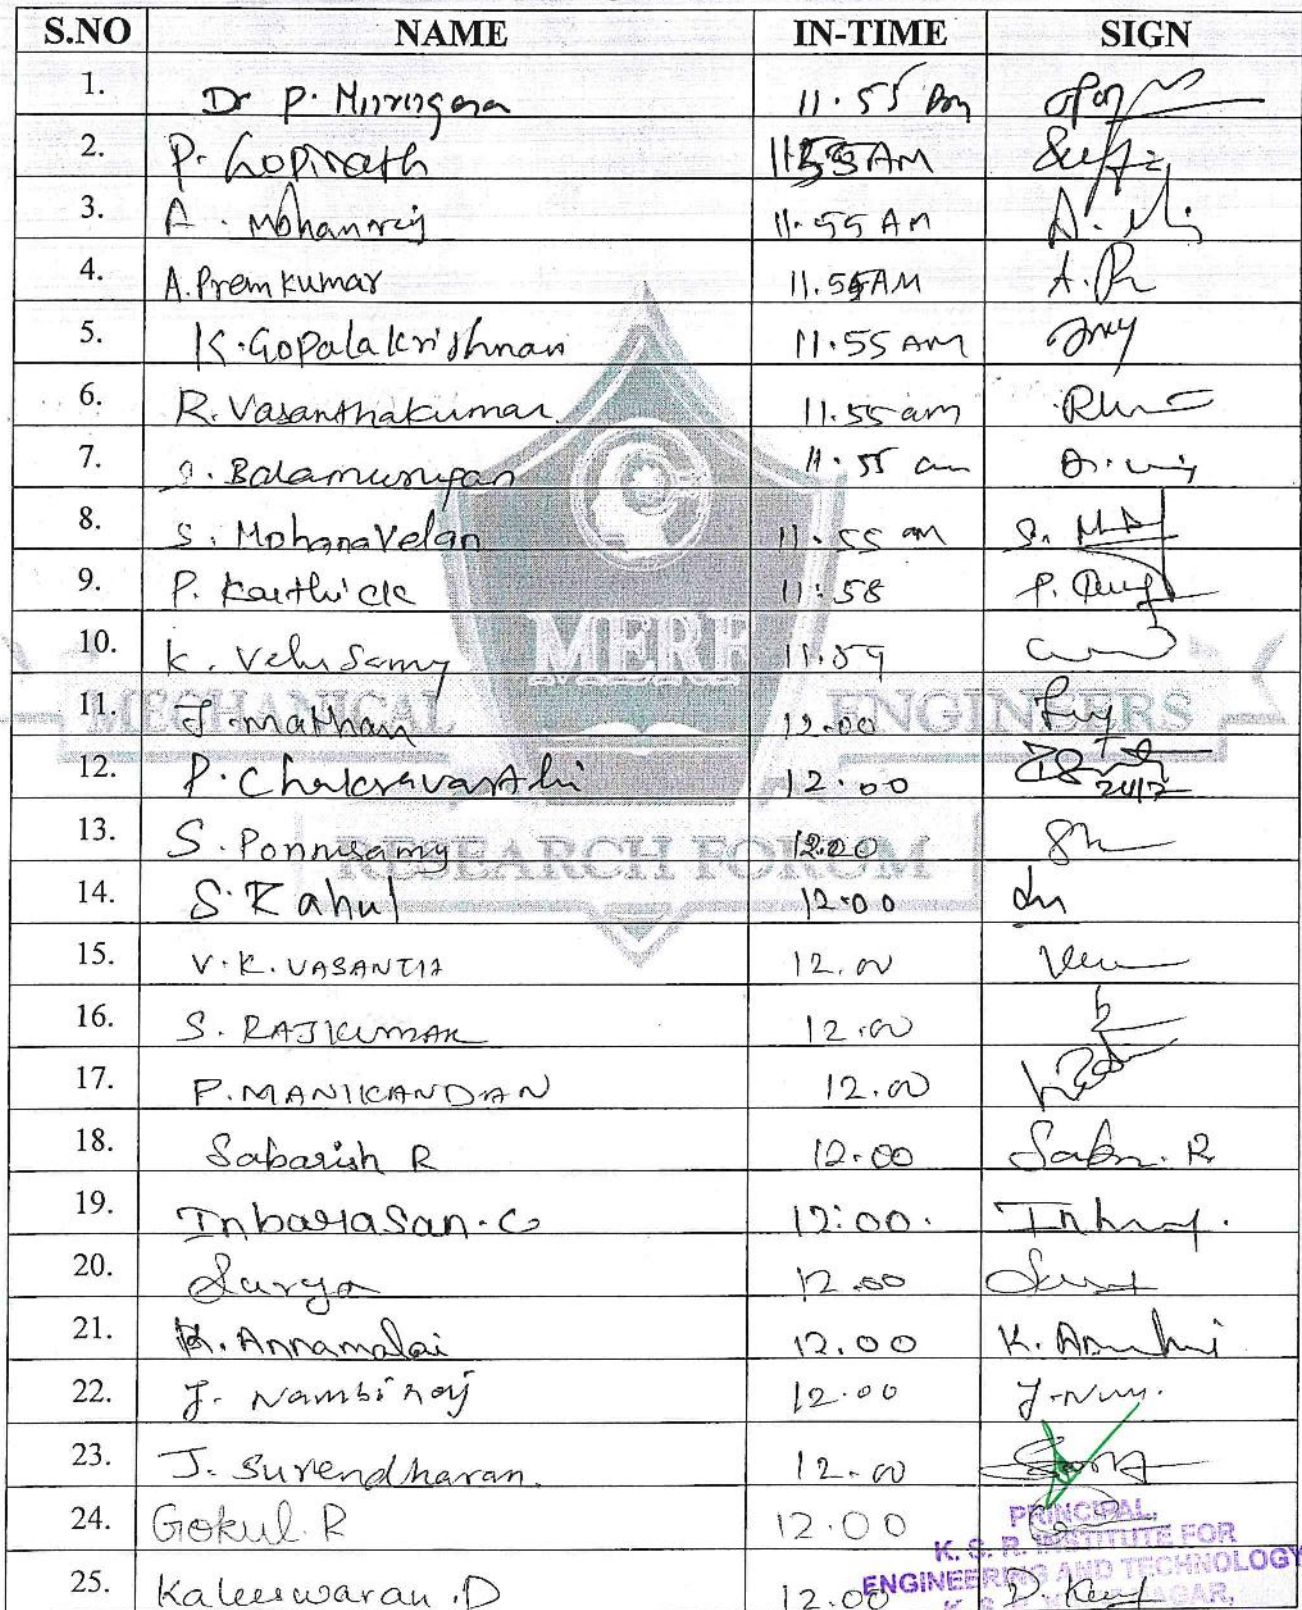 S.NO NAME IN-TIME SIGN
1. Dr P. Murugesan 11.55 Am
2. P. Gopinath 11.55 AM
3. A. Mohanraj 11.55 AM
4. A. Prem kumar 11.55AM
5. K. Gopala krishnan 11.55 AM
6. R. Vasanthakumar. 11.55 am
7. Balamurugan 11.55 am
8. S. Mohanavelan 11.55 am
9. P. Karthick 11:58
10. K. Velusamy 11.59
11. J. Mathan 12.00
12. P. Chakravarthi 12.00
24/7
13. S. Ponnusamy 12.00
14. S. Rahul 12.00
15. V.K. VASANTH 12.00
16. S. RAJKUMAR 12.00
17. P. MANIKANDAN 12.00
18. Sabarish R 12.00
19. Inbarasan. C 12:00.
20. Surya 12.00
21. K. Annamalai 12.00
22. J. Nambiraj 12.00
23. J. Surendharan. 12.00
24. Gokul. R 12.00
25. Kaleeswaran .D 12.00
MERF
MECHANICAL ENGINEERS
RESEARCH FORUM
PRINCIPAL,
K. S. R. INSTITUTE FOR
ENGINEERING AND TECHNOLOGY